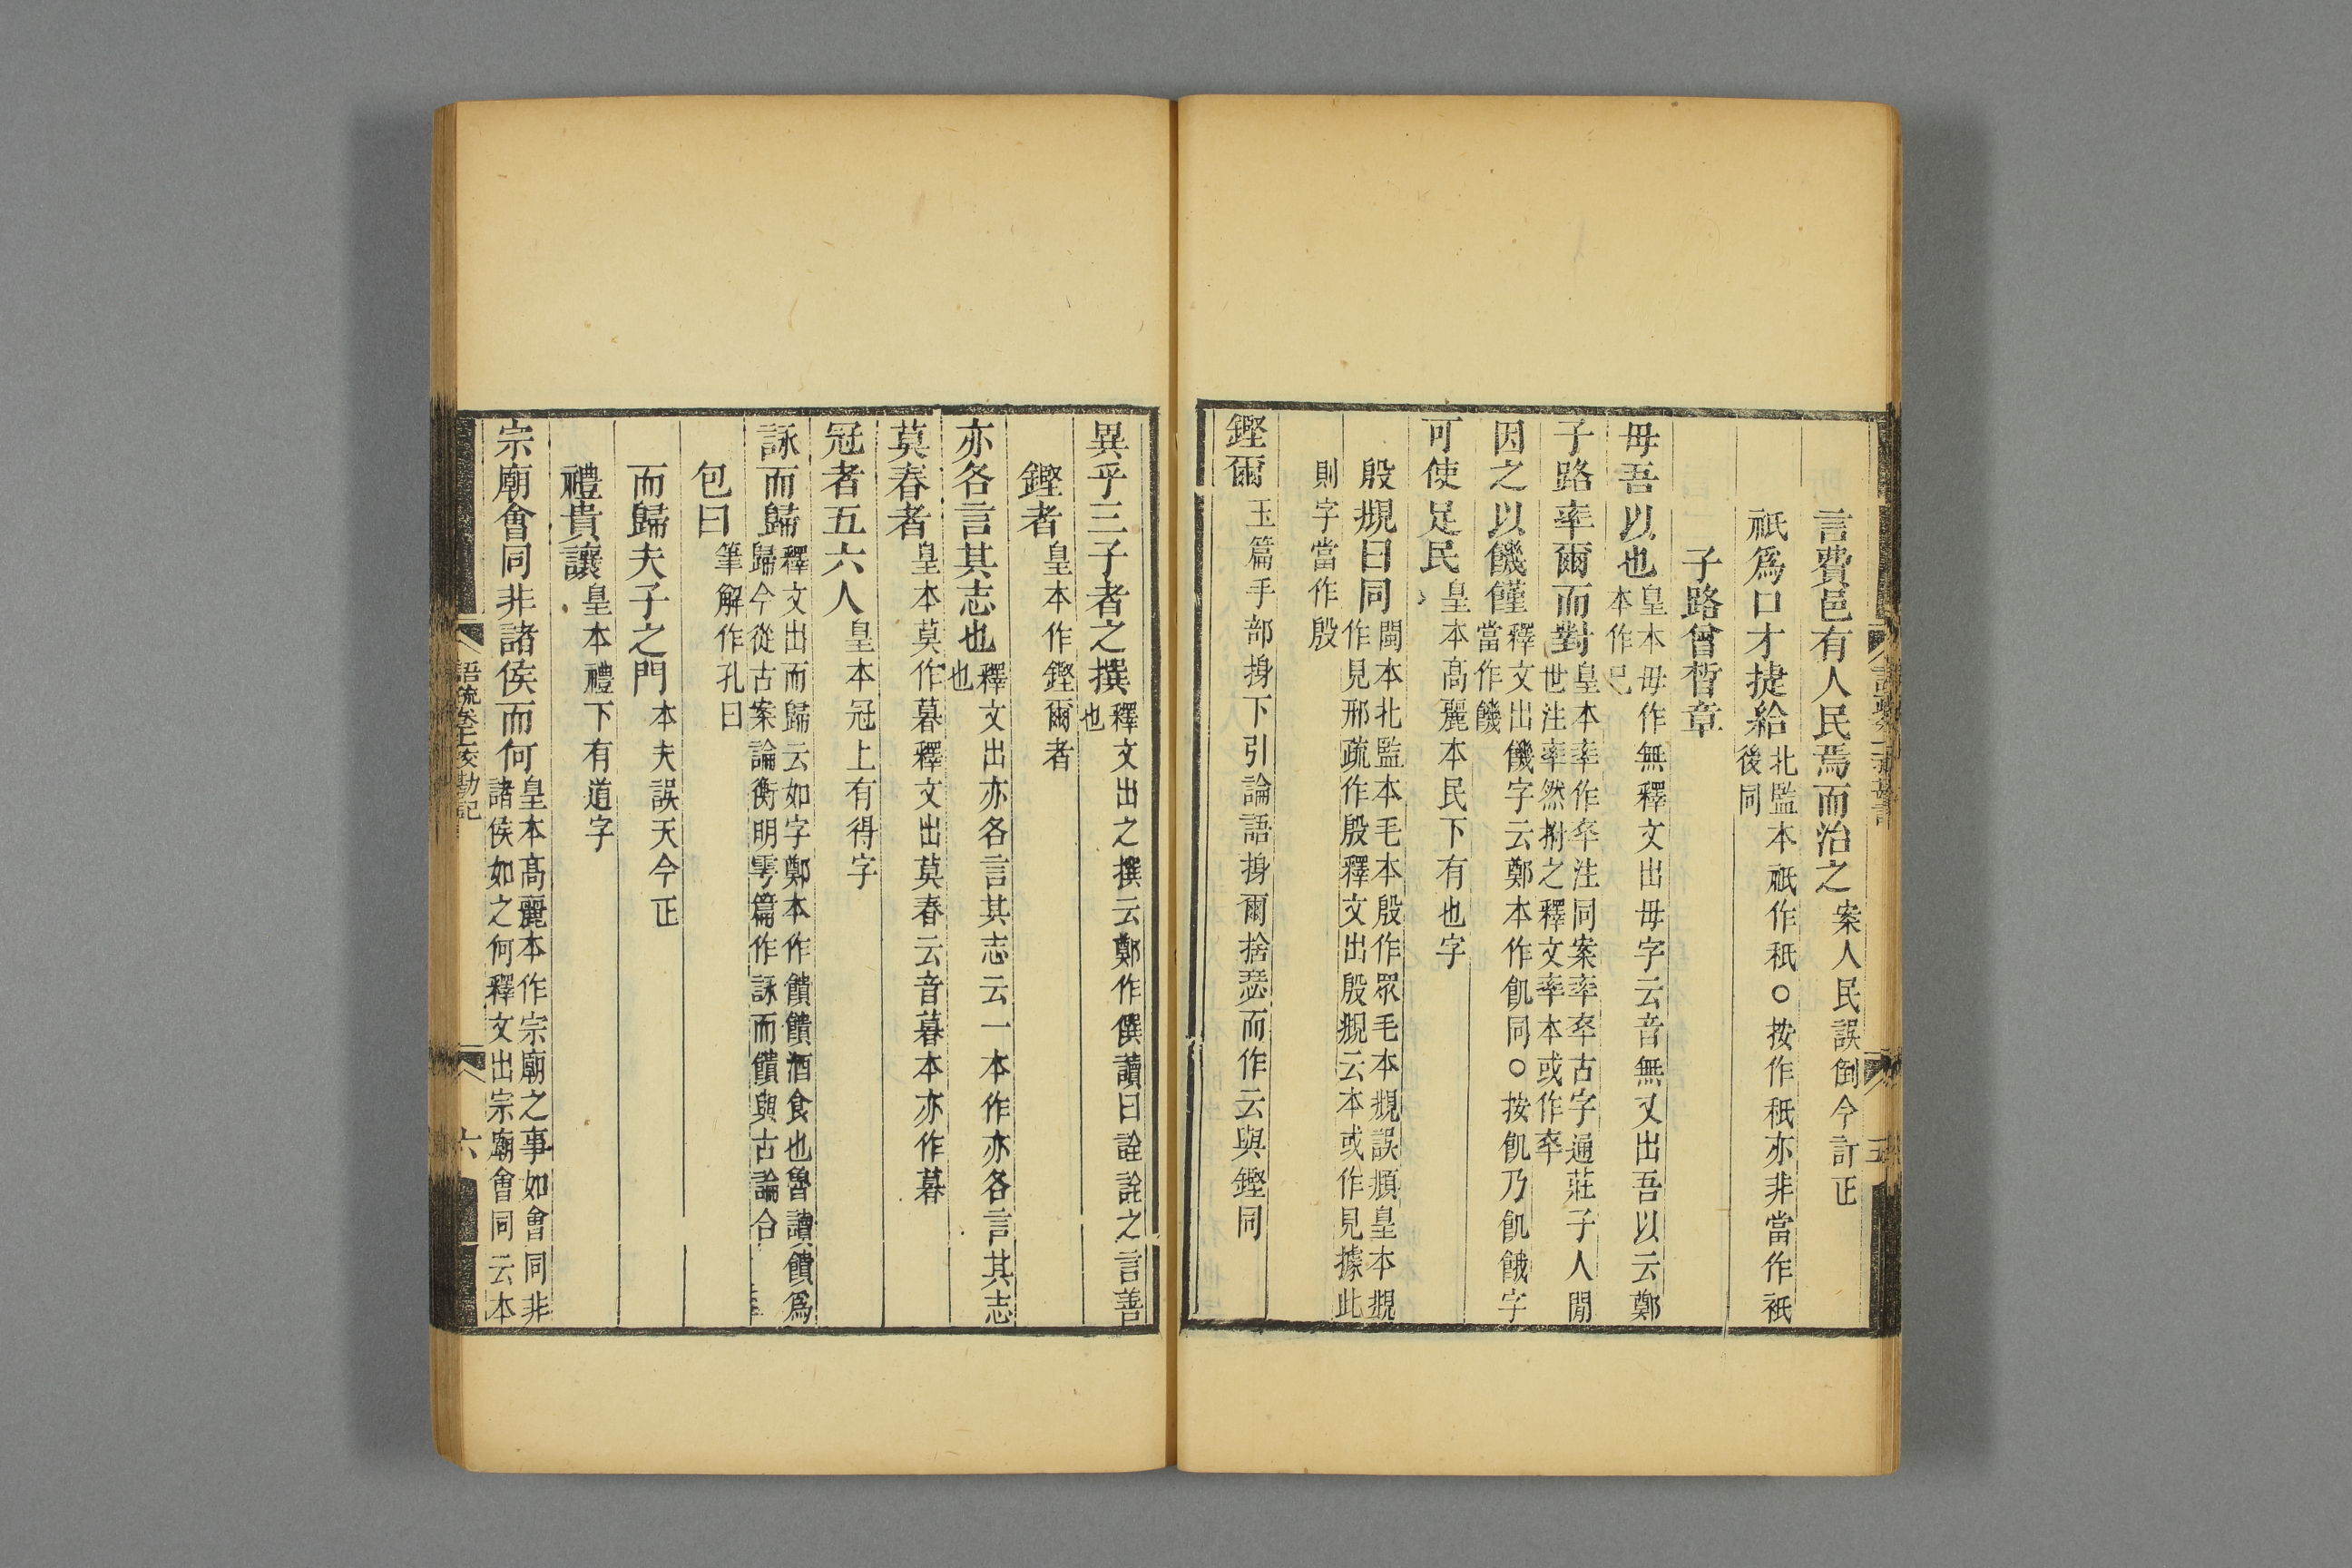 言費邑有人民焉而治之案人民誤倒今訂正
祇爲口才捷給北監本祇作秖○按作秖亦非當作衹
後同
子路曾晳章
毋吾以也皇本毋作無釋文出毋字云音無又出吾以云鄭
本作已
子路率爾而對皇本率作卒注同案率卒古字通莊子人閒
世注率然拊之釋文率本或作卒
因之以饑饉釋文出饑字云鄭本作飢同○按飢乃飢餓字
當作饑
可使足民皇本高麗本民下有也字
殷覜曰同閩本北監本毛本殷作眾毛本覜誤頫皇本覜
作見邢疏作殷釋文出殷覜云本或作見據此
則字當作殷
鏗爾玉篇手部摼下引論語摼爾捨瑟而作云與鏗同
異乎三子者之撰釋文出之撰云鄭作僎讀曰詮詮之言善
也
鏗者皇本作鏗爾者
亦各言其志也釋文出亦各言其志云一本作亦各言其志
也
莫春者皇本莫作暮釋文出莫春云音暮本亦作暮
冠者五六人皇本冠上有得字
詠而歸釋文出而歸云如字鄭本作饋饋酒食也魯讀饋爲
歸今從古案論衡明雩篇作詠而饋與古論合
包曰筆解作孔曰
而歸夫子之門本夫誤天今正
禮貴讓皇本禮下有道字
宗廟會同非諸侯而何皇本高麗本作宗廟之事如會同非
諸侯如之何釋文出宗廟會同云本
語疏卷十一挍勘記
六